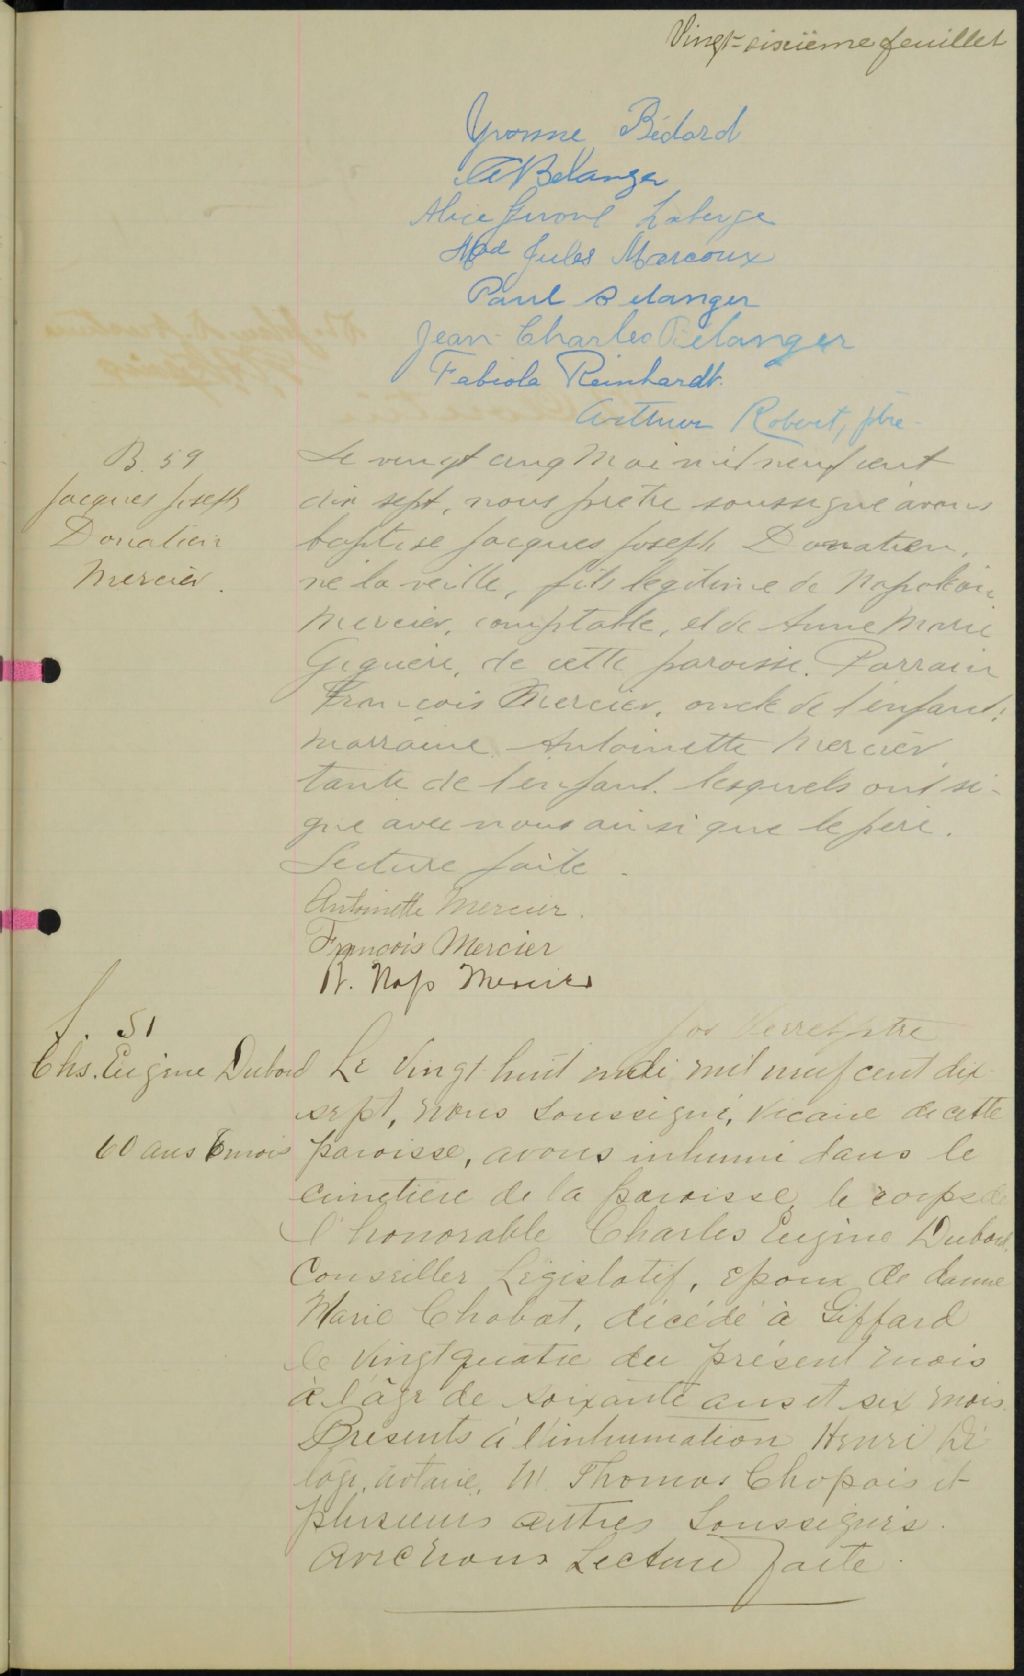 Vingt-sixième feuillet
Yvonne Bédard
A Bélanger
Alice Laberge
Mad Jules Marcoux
Paul Belanger
Jean-Charles Belanger
Fabiola Reinhardt.
Arthur Robert, ptre
B. 59
Jacques Joseph
Donatien
Mercier.
Le vingt cinq Mai mil neuf cent
dix sept, nous prêtre soussigné avons
baptisé Jacques Joseph Donatien,
né la veille, fils légitime de Napoléon
Mercier, comptable, et de Anne Marie
Giguère, de cette paroisse. Parrain
François Mercier, oncle de l'enfant;
marraine Antoinette Mercier,
tante de l'enfant. lesquels ont si-
gné avec nous ainsi que le père.
Lecture faite.
Antoinette Mercier.
François Mercier
Nap Mercier
Jos Verret ptre
S. 51
Chs. Eugène Dubord
60 ans 6 mois
Le Vingt-huit mai mil neuf cent dix
sept, nous soussigné, vicaire de cette
paroisse, avons inhumé dans le
cimetière de la paroisse, le corps de
l'honorable Charles Eugène Dubord,
Conseiller Législatif, époux de dame
Marie Chabot, décédé à Giffard
le vingt quatre du présent mois
à l'âge de soixante ans et six mois.
Présents à l'inhumation Henri De
lâge, notaire, M. Thomas Chapais et
plusieurs autres soussignés.
avec nous Lecture faite.